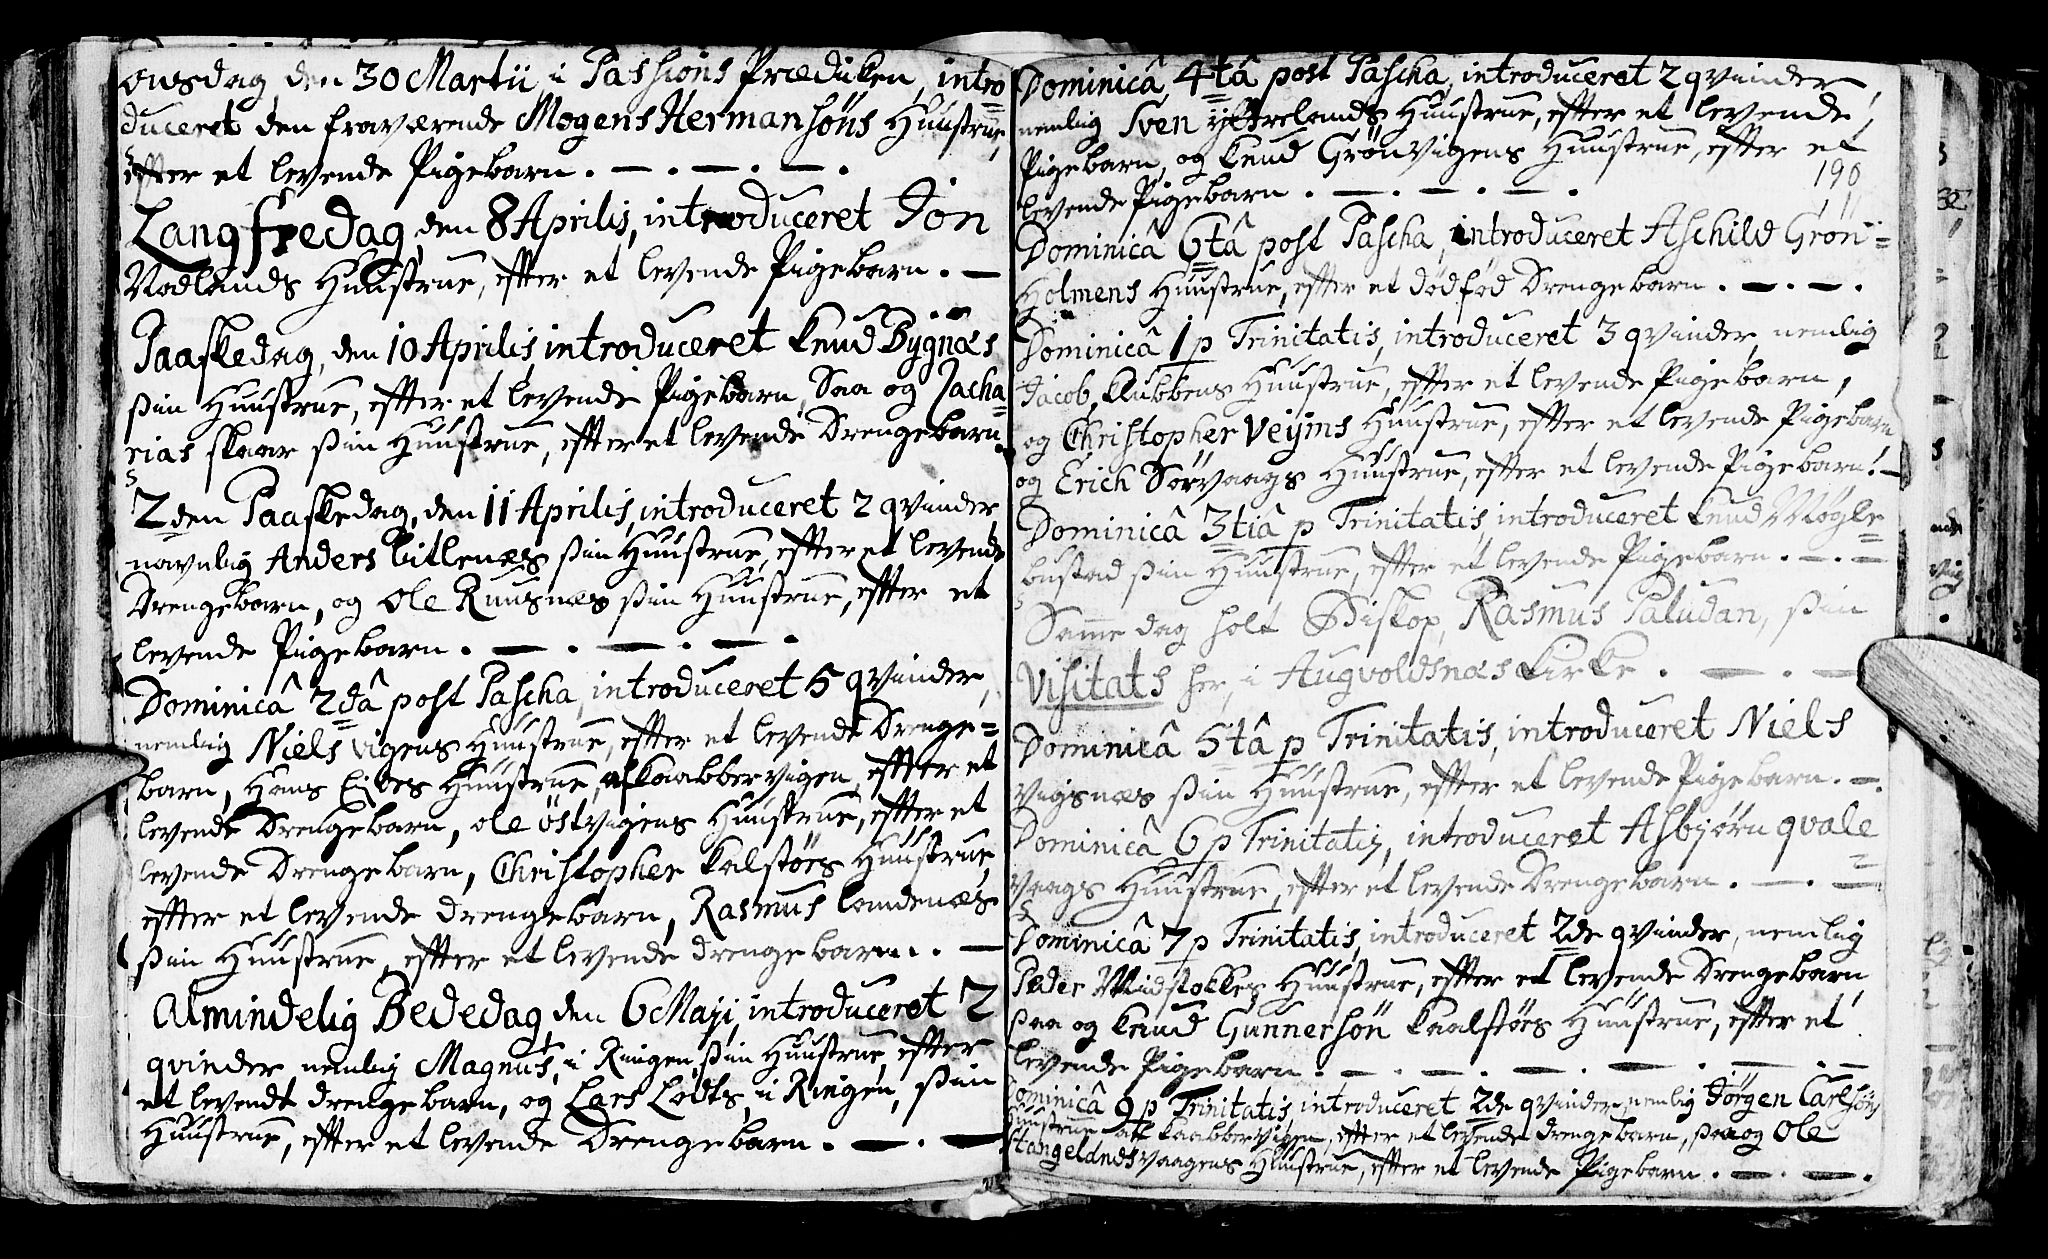 onsdag, den 30 Martii, i Passions Prædiken, intro=
duceret den fraværende Mogens Hermansöns Huustrue,
efter et levende Pigebarn. — . — . — .
Langfredag, den 8 Aprilis, introduceret Jon
Nodlands Huustrue, efter et levende Pigebarn. —
Paaskedag, den 10 Aprilis, introduceret Knud Bygnæs
sin Huustrue, efter et levende Pigebarn, Saa og Zacha=
rias skaar sin Huustrue, efter et levende Drengebarn.
2den Paaskedag, den 11 Aprilis, introduceret 2 qvinder
navnlig Anders Litlenæs sin Huustrue, efter et levende
Drengebarn, og Ole Ruusnæs sin Huustrue, efter et
levende Pigebarn. — . — . — .
Dominicâ 2dâ post Pascha, introduceret 5 qvinder,
nemlig Niels vigens Huustrue, efter et levende Drenge=
barn, Hans Eides Huustrue, af Kaabbervigen, efter et
levende Drengebarn, ole östvigens Huustrue, efter et
levende Drengebarn, Christopher Kalstöes Huustrue,
efter et levende drengebarn, Rasmus Lamdenæs
sin Huustrue, efter et levende drengebarn. . —
Almindelig Bededag, den 6 Maji, introduceret 2
qvinder nemlig Magnus, i Ringen, sin Huustrue, efter
et levende drengebarn, og Lars Lodts, i Ringen, sin
Huustrue, efter et levende Drengebarn. — . —
Dominicâ 4tâ post Pascha, introduceret 2 qvinder,
nemlig Sven yttrelands Huustrue, efter et levende
Pigebarn, og Knud Grönvigens Huustrue, efter et
190
levende Pigebarn. — . — . — .
Dominicâ 6tâ post Pascha, introduceret Aschild Grön=
Holmens Huustrue, efter et dödföd Drengebarn. — . — .
Dominicâ 1 p Trinitatis, introduceret 3 qvinder, nemlig
Jacob, Klubbens Huustrue, efter et levende Pigebarn,
og Christopher Veyms Huustrue, efter et levende Pigebarn
og Erich Sørvaags Huustrue, efter et levende Pigebarn. —
Dominicâ 3tiâ p Trinitatis, introduceret Knud Møgle=
bustad sin Huustrue, efter et levende Pigebarn. — . —
Samme dag holt Biskop, Rasmus Paludan, sin
Visitats her, i Augvoldsnæs Kirke. — . —
Dominicâ 5tâ p Trinitatis, introduceret Niels
Vigsnæs sin Huustrue, efter et levende Pigebarn. — .
Dominicâ 6 p Trinitatis, introduceret Asbjörn qvale=
vaags Huustrue, efter et levende Drengebarn. — . —
Dominicâ 7 p Trinitatis, introduceret 2de qvinder, nemlig
Peder Midstokkes Huustrue, efter et levende Drengebarn,
saa og Knud Gunnersön Kaalstöes Huustrue, efter et
levende Pigebarn. — . — . — . — . — . —
Dominicâ 9 p Trinitatis, introduceret 2de qvinder, nemlig Jörgen Carlsöns
Huustrue af Kaabbervigen, efter et levende drengebarn, saa og Ole
Stangelandsvaagens Huustrue, efter et levende Pigebarn. — . — .